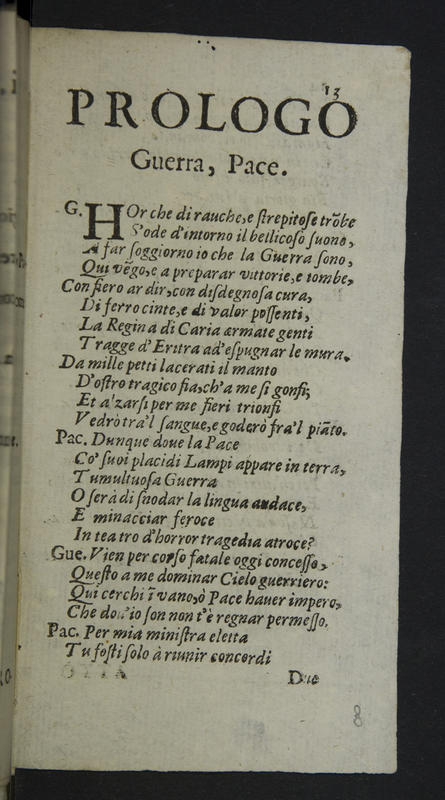 13
PROLOGO
Guerra, Pace.
G. HOr che di rauche, e ſtrepitoſe trõbe
S'ode d'intorno il bellicoſo ſuono,
A far ſoggiorno io che la Guerra ſono,
Qui vẽgo, e a preparar vittorie, e tombe,
Con fiero ardir, con diſdegnoſa cura,
Di ferro cinte, e di valor poſſenti,
La Regina di Caria armate genti
Tragge d'Eritra ad'eſpugnar le mura.
Da mille petti lacerati il manto
D'oſtro tragico fia, ch'a me ſi gonfi;
Et alzarſi per me fieri trionfi
Vedrò tra'l ſangue, e goderò fra'l piãto.
Pac. Dunque doue la Pace
Co' ſuoi placidi Lampi appare in terra,
Tumultuoſa Guerra
Oſerà di ſnodar la lingua audace,
E minacciar feroce
In teatro d'horror tragedia atroce?
Gue. Vien per corſo fatale oggi conceſſo,
Queſto a me dominar Cielo guerriero:
Qui cerchi ĩ vano, ò Pace hauer impero,
Che dou'io ſon non t'è regnar permeſſo.
Pac. Per mia miniſtra eletta
Tu foſti ſolo à riunir concordi
Due
8